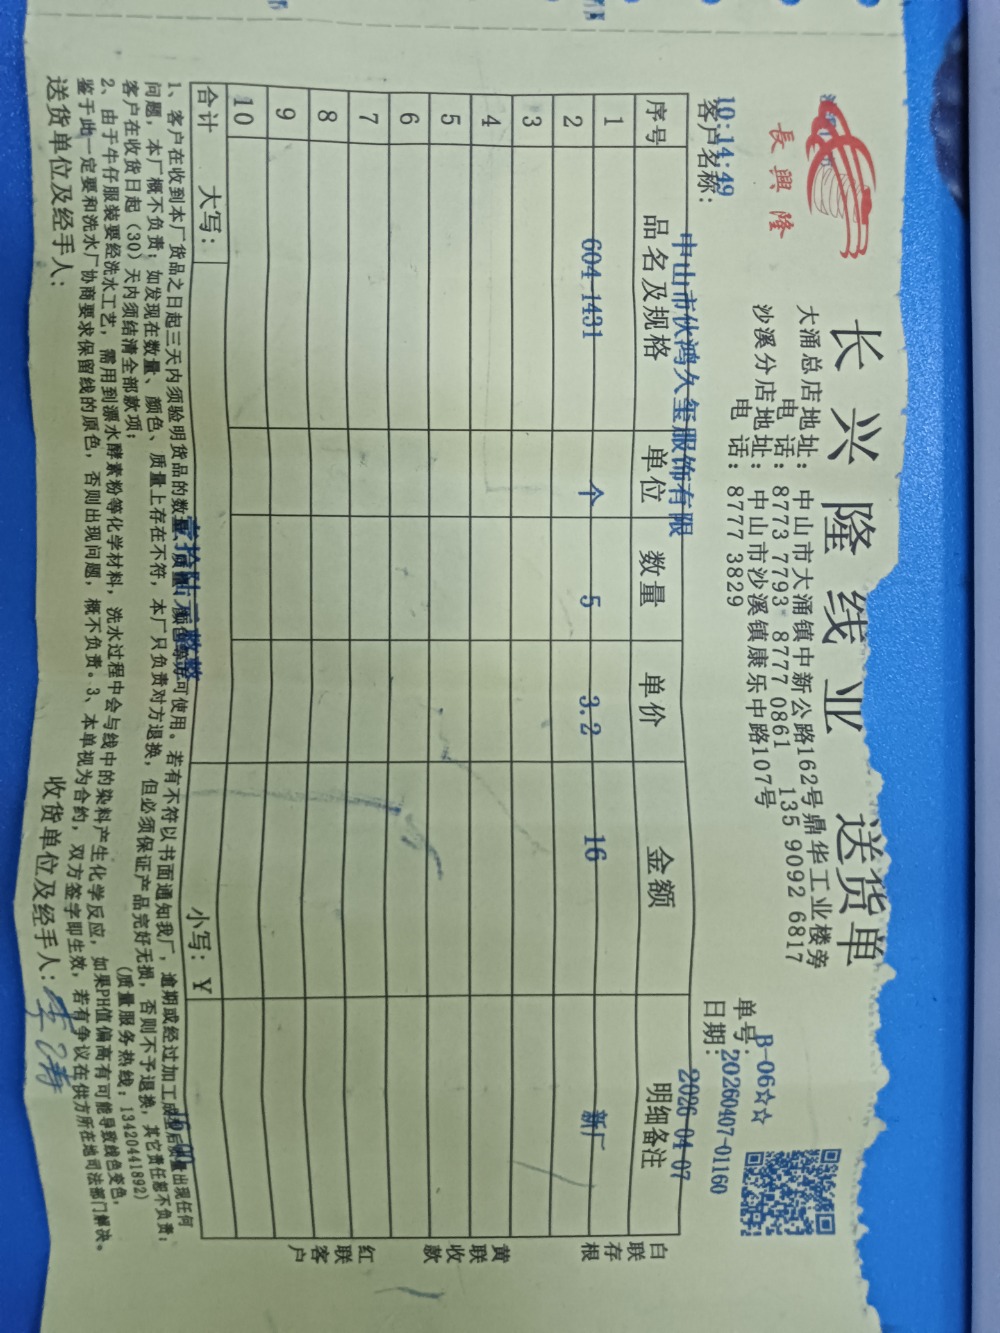 長興隆
长兴隆线业 送货单
大涌总店地址: 中山市大涌镇中新公路162号鼎华工业楼旁
电 话: 8773 7793 8777 0861 135 9092 6817
沙溪分店地址: 中山市沙溪镇康乐中路107号
电 话: 8777 3829
B-06☆☆
单号: 20260407-01160
10:14:49
客户名称: 中山市伙鸿久玺服饰有限
日期: 2026-04-07
序号 品名及规格 单位 数量 单价 金额 明细备注
1 604-1431 个 5 3.2 16 新厂
2
3
4
5
6
7
8
9
10
合计 大写: 壹拾陆元整 小写: ¥
白联存根
黄联收款
红联客户
1、客户在收到本厂货品之日起三天内须验明货品的数量、质量、颜色等方可使用。若有不符以书面通知我厂,逾期或经过加工成型后质量出现任何
问题,本厂概不负责;如发现在数量、颜色、质量上存在不符,本厂只负责对方退换,但必须保证产品完好无损,否则不予退换,其它责任恕不负责;
客户在收货日起(30)天内须结清全部款项; (质量服务热线:13420441892)
2、由于牛仔服装要经洗水工艺,需用到漂水酵素粉等化学材料,洗水过程中会与线中的染料产生化学反应,如果PH值偏高有可能导致线色变色,
鉴于此一定要和洗水厂协商要求保留线的原色,否则出现问题,概不负责。3、本单视为合约,双方签字即生效,若有争议在供方所在地司法部门解决。
送货单位及经手人: 收货单位及经手人: